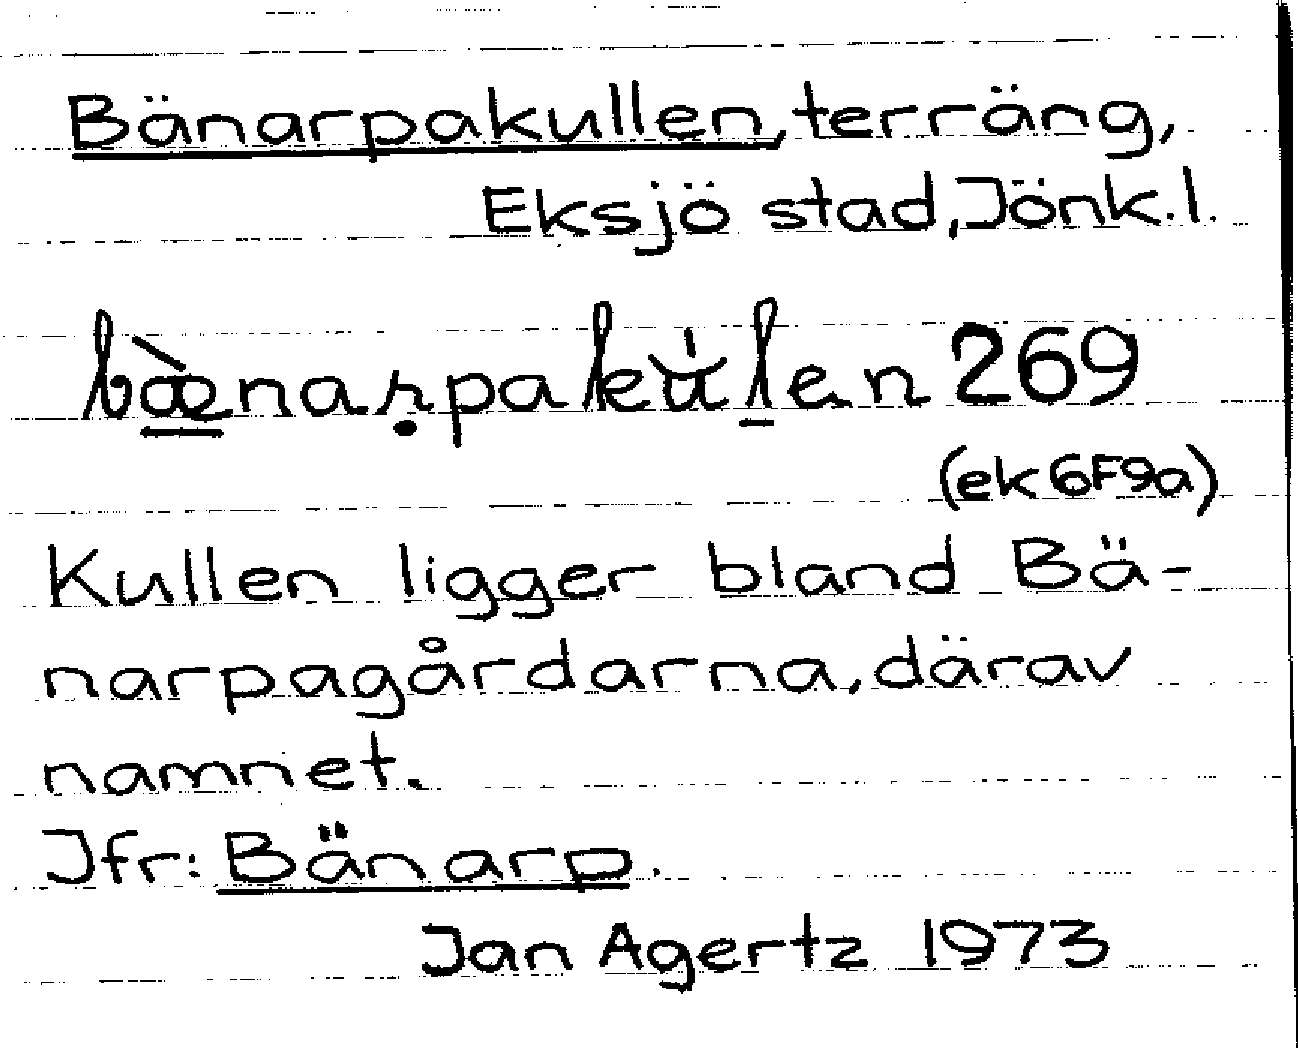 Bänarpakullen, terräng,
Eksjö stad, Jönk.l.
bæ̀narpakùlen 269
(ek6F9a)
Kullen ligger bland Bä-
narpagårdarna, därav
namnet.
Jfr: Bänarp.
Jan Agertz 1973